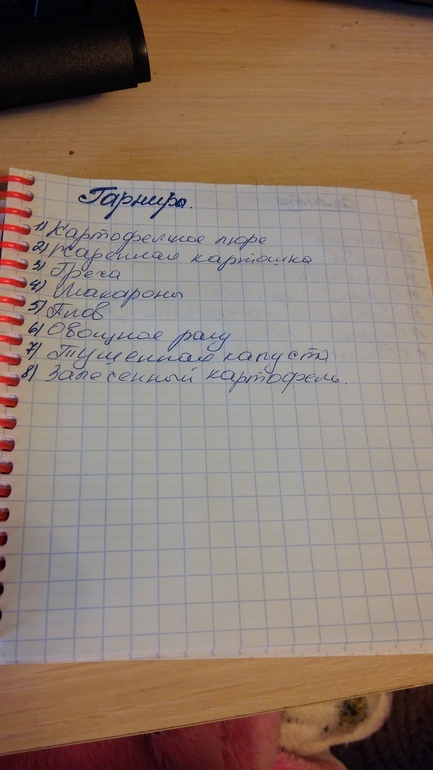 Гарниры.
1) Картофельное пюре
2) Жаренная картошка
3) Греча
4) Макароны
5) Плов
6) Овощное рагу
7) Тушенная капуста
8) Запеченный картофель.